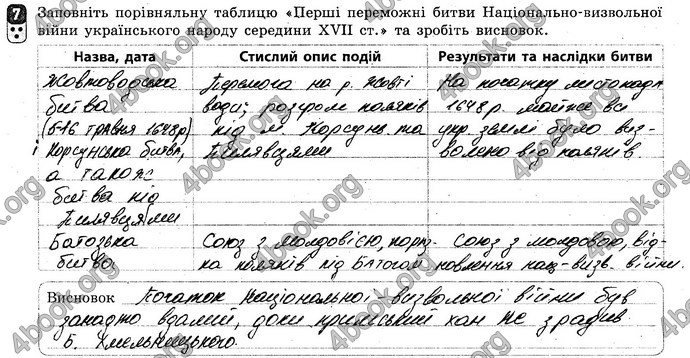 7 Заповніть порівняльну таблицю «Перші переможні битви Національно-визвольної
війни українського народу середини XVII ст.» та зробіть висновок.
Назва, дата Стислий опис подій Результати та наслідки битви
Жовтоводська Перемога на р. Жовті На початку листопада
битва води; розгром поляків 1648 р. майже всі
(5-16 травня 1648р) під м. Корсунь та укр. землі було виз-
і Корсунська битви, Пилявцями волено від поляків.
а також
битва під
Пилявцями
Батозька Союз з молдовією, Союз з молдовою, від-
битва ка поляків під Батогом новлення нац-визв. війни.
Висновок Початок Національної-визвольної війни був
занадто вдалий, доки кримський хан не зрадив
Б. Хмельницького.
4book.org